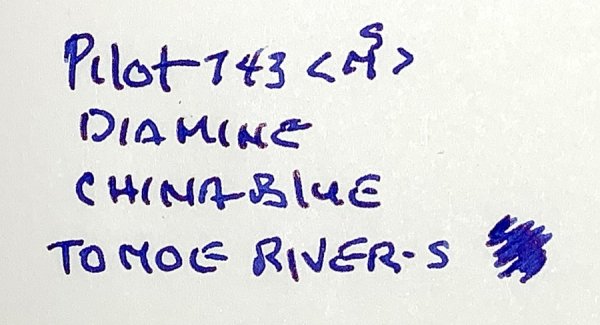 Pilot 743 <MS>
DIAMINE
CHINA BLUE
TOMOE RIVER-S